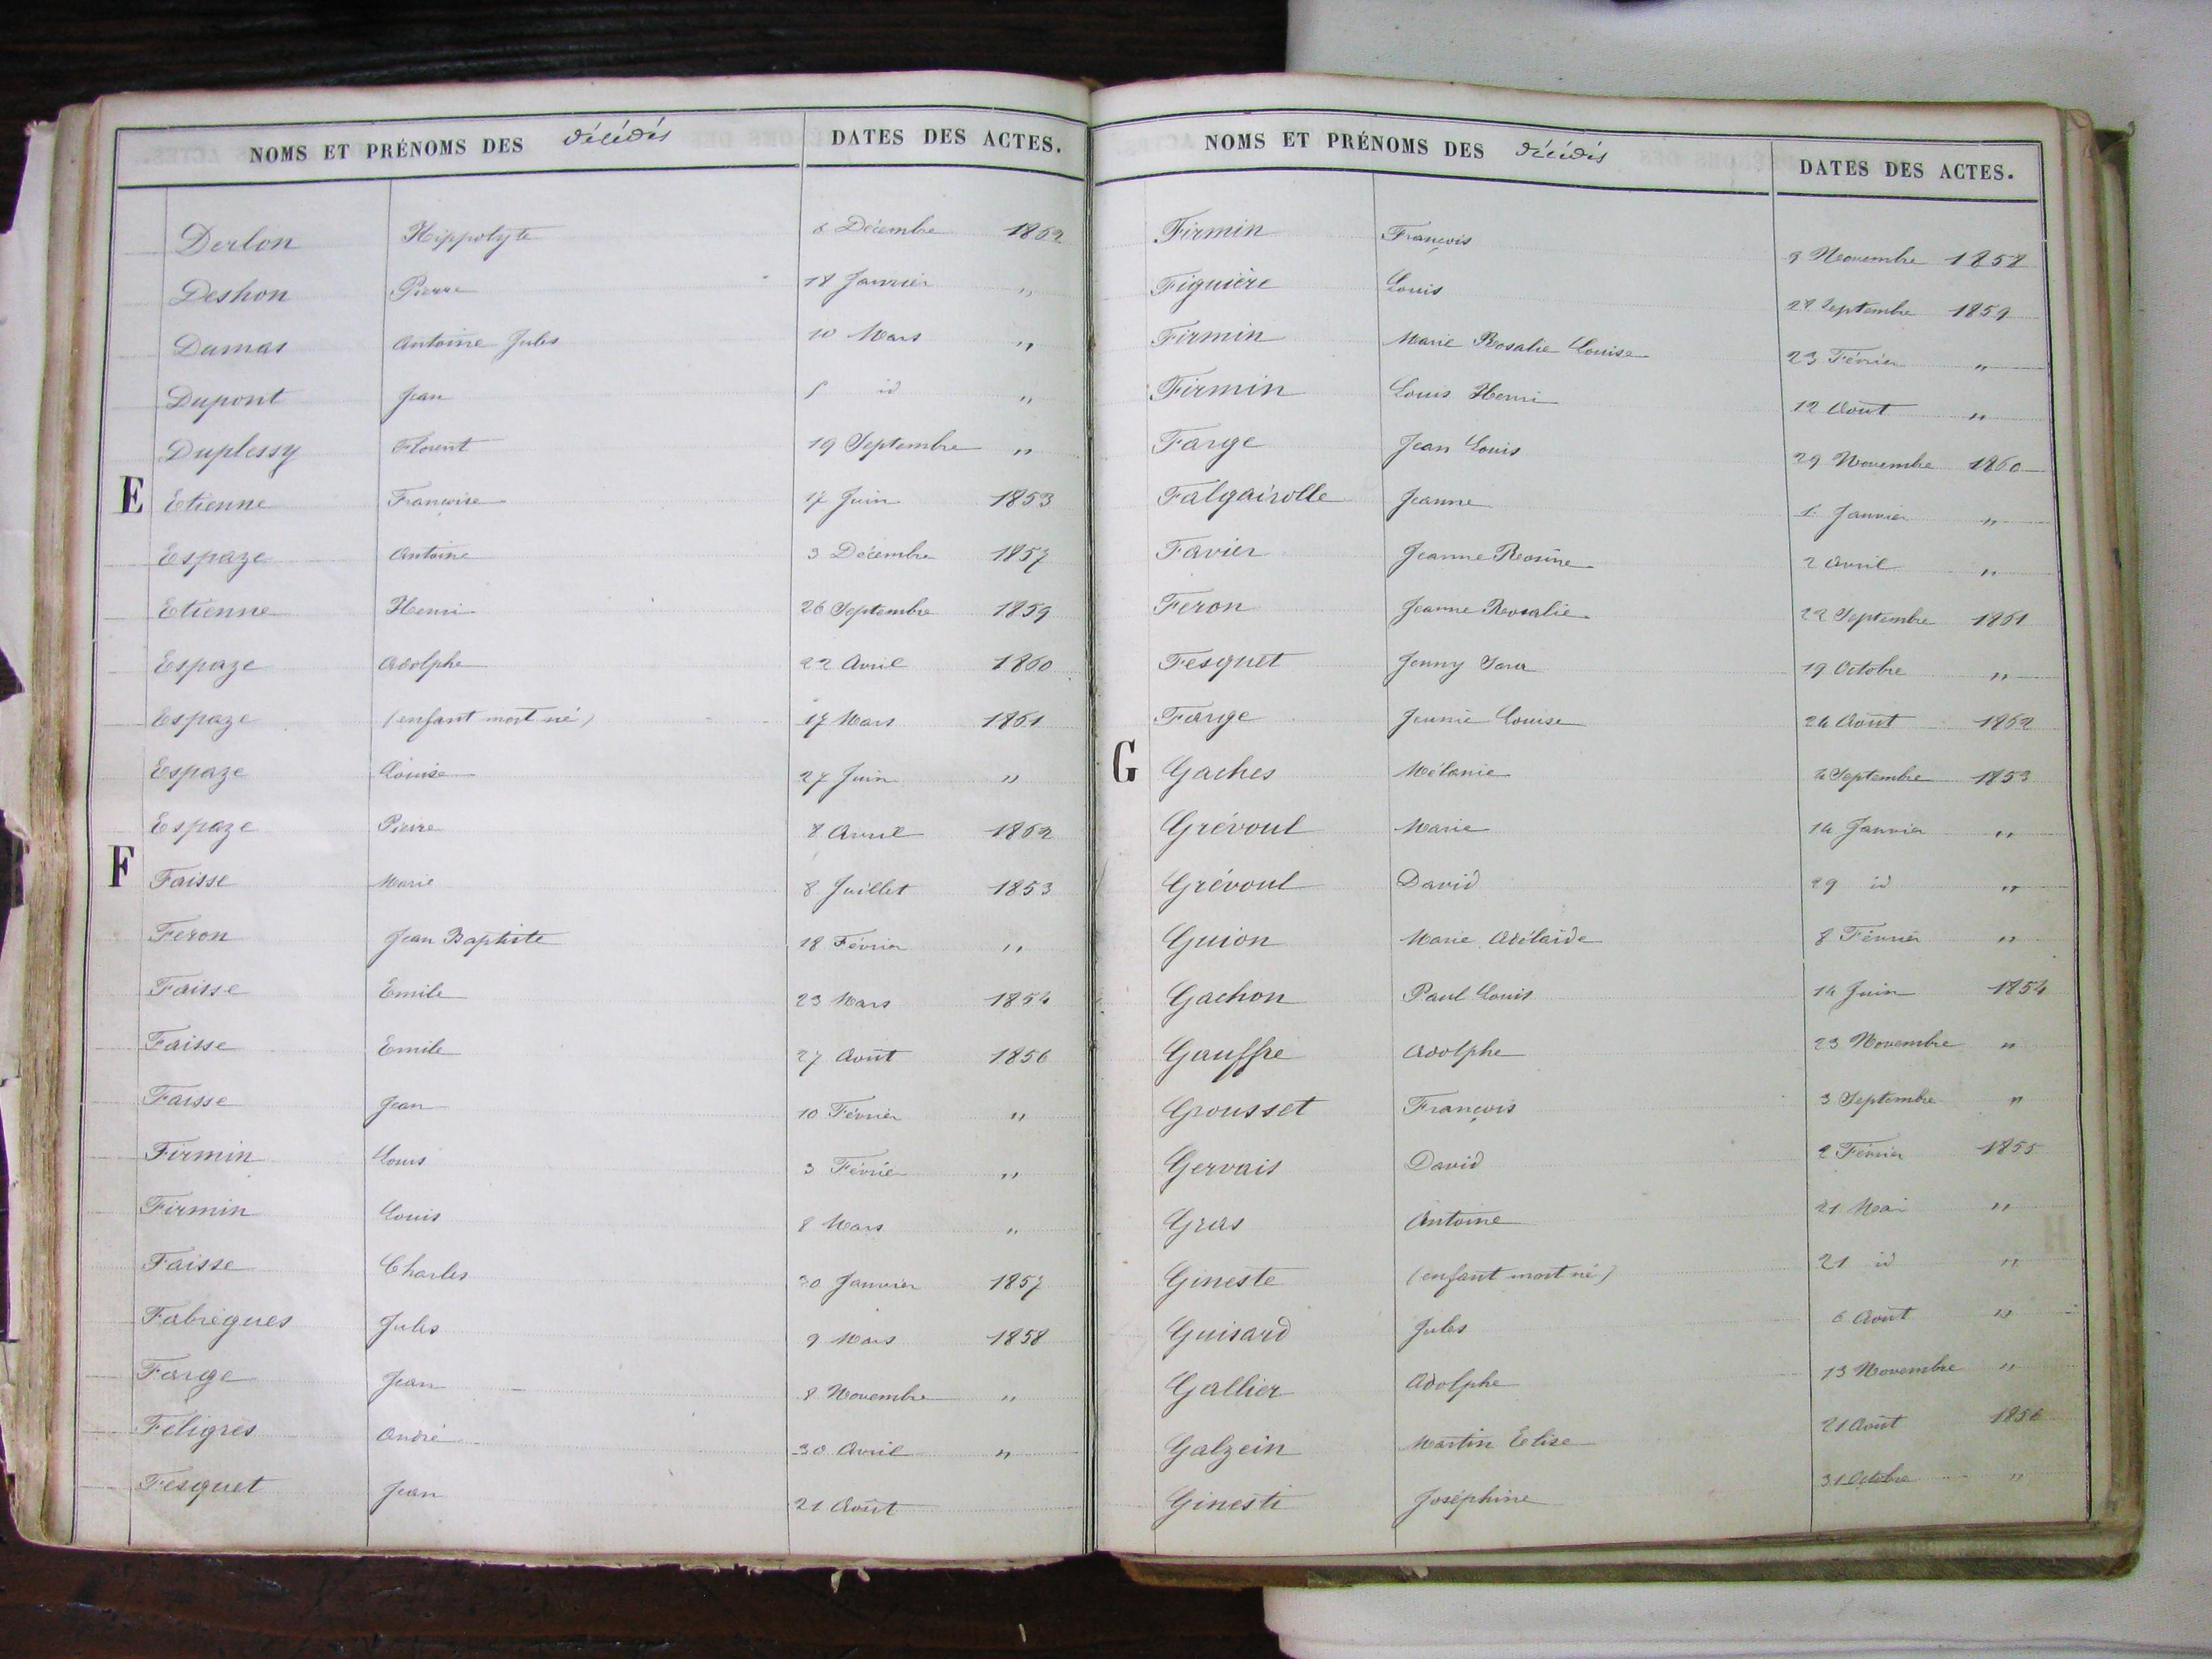 NOMS ET PRÉNOMS DES décédés DATES DES ACTES.
Derlon Hippolyte 6 Décembre 1862
Deshon Pierre 18 Janvier "
Dumas Antoine Jules 10 Mars "
Dupont Jean id "
Duplessy Florent 19 Septembre "
E Etienne Françoise 17 Juin 1853
Espaze Antoine 3 Décembre 1857
Etienne Henri 26 Septembre 1859
Espaze Adolphe 22 Avril 1860
Espaze (enfant mort né) 17 Mars 1861
Espaze Louise 27 Juin "
Espaze Pierre 8 Avril 1862
F Faisse Marie 8 Juillet 1853
Feron Jean Baptiste 18 Février "
Faisse Emile 23 Mars 1854
Faisse Emile 27 Août 1856
Faisse Jean 10 Février "
Firmin Louis 3 Février "
Firmin Louis 8 Mars "
Faisse Charles 30 Janvier 1857
Fabrègues Jules 9 Mars 1858
Farge Jean 8 Novembre "
Féligrès André 30 Avril "
Fesquet Jean 21 Août
NOMS ET PRÉNOMS DES décédés DATES DES ACTES.
Firmin François 9 Novembre 1858
Figuière Louis 28 Septembre 1859
Firmin Marie Rosalie Louise 23 Février "
Firmin Louis Henri 12 Août "
Farge Jean Louis 29 Novembre 1860
Falgairolle Jeanne 1 Janvier "
Favier Jeanne Rosine 2 Avril "
Feron Jeanne Rosalie 22 Septembre 1861
Fesquet Jenny Sara 19 Octobre "
Farge Jennie Louise 24 Août 1862
G Gaches Mélanie 2 Septembre 1853
Grévoul Marie 14 Janvier "
Grévoul David 29 id "
Guion Marie Adélaïde 8 Février "
Gachon Paul Louis 14 Juin 1854
Gauffre Adolphe 23 Novembre "
Grousset François 3 Septembre "
Gervais David 2 Février 1855
Gras Antoine 21 Mai "
Gineste (enfant mort né) 21 id "
Guisard Jules 6 Août "
Gallier Adolphe 13 Novembre "
Galzein Martin Elise 21 Août 1856
Ginesti Joséphine 31 Octobre "